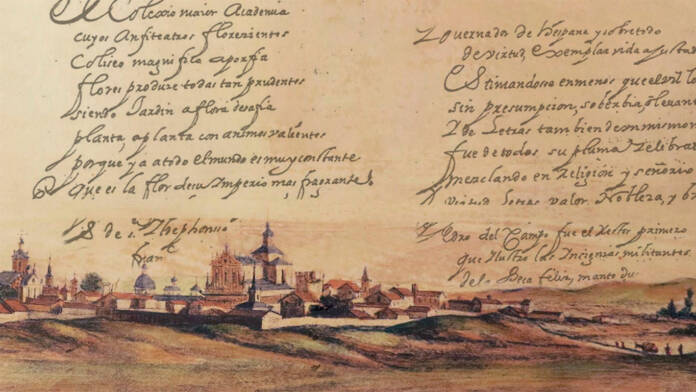 Colexio maior Academia
cuyos Anfiteatros florecientes
Coliseo magnifico aporfia
flores produze todas tan prudentes
siendo Jardin a flora desafia
planta, a planta con animos valientes
porque ya a todo el mundo es muy constante
Que es la flor de su Imperio mas fragrante
S de s.n Ilhephonsso
fran
Governador de hespana y sobre todo
de virtud, Exemplar vida
Estimandose en menos que el vil lo
sin presumpcion, soberbia,
de Letras tambien
fue de todos su pluma Zelibra
mezclando en Religion y señorio
virtud Letras valor Nobleza, y
Pedro del Campo fue el Rector primero
que illustro las Insignias militantes
del Beca feliz, manto du